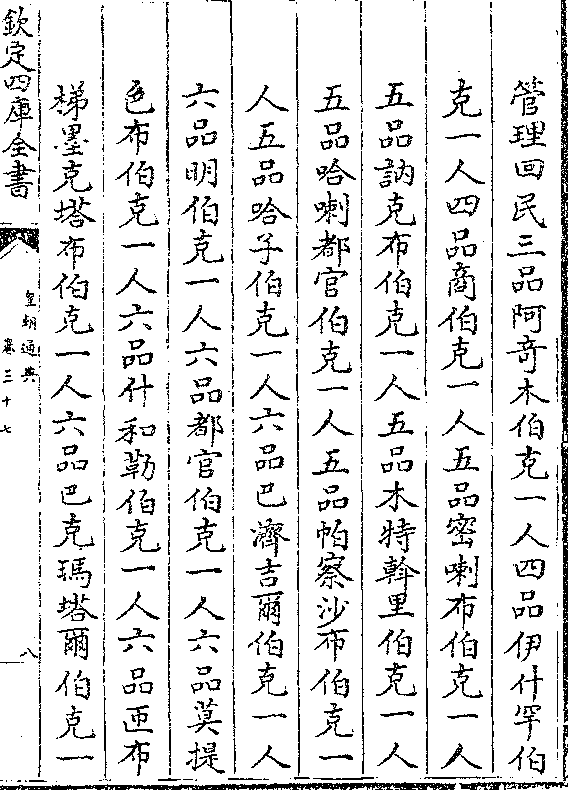 管理回民三品阿竒木伯克一人四品伊什罕伯
克一人四品商伯克一人五品密喇布伯克一人
五品訥克布伯克一人五品木特斡里伯克一人
五品哈喇都官伯克一人五品帕察沙布伯克一
人五品哈子伯克一人六品巴濟吉爾伯克一人
六品明伯克一人六品都官伯克一人六品莫提
色布伯克一人六品什和勒伯克一人六品匝布
梯墨克塔布伯克一人六品巴克瑪塔爾伯克一
欽定四庫全書
皇朝通典
卷三十七
八